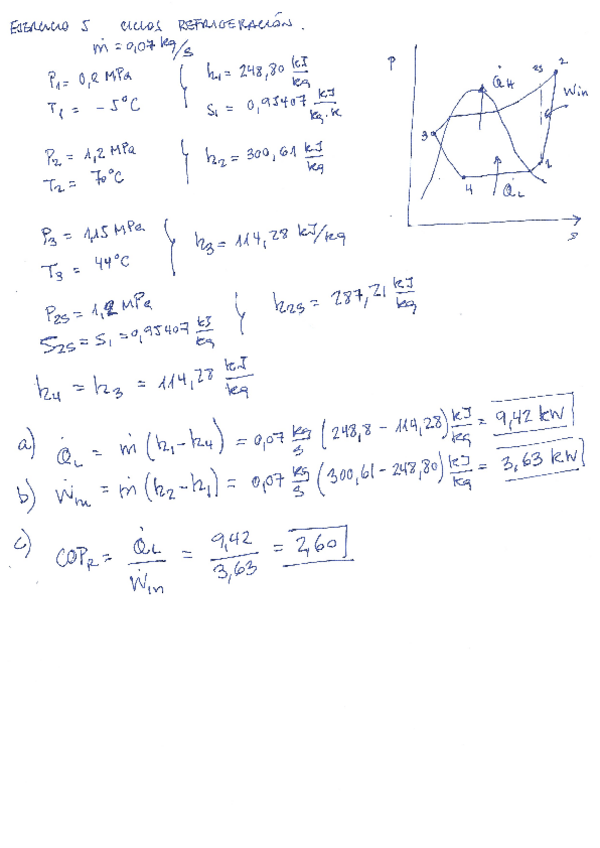 EJERCICIO 5 CICLOS REFRIGERACIÓN.
ṁ = 0,07 kg/s
P₁ = 0,2 MPa
T₁ = -5°C
h₁ = 248,80 kJ/kg
s₁ = 0,95407 kJ/kg·K
P₂ = 1,2 MPa
T₂ = 70°C
h₂ = 300,61 kJ/kg
P₃ = 1,15 MPa
T₃ = 44°C
h₃ = 114,28 kJ/kg
P₂s = 1,2 MPa
S₂s = S₁ = 0,95407 kJ/kg
h₂s = 287,21 kJ/kg
h₄ = h₃ = 114,28 kJ/kg
a) Q̇L = ṁ (h₁-h₄) = 0,07 kg/s (248,8 - 114,28) kJ/kg = 9,42 kW
b) Ẇin = ṁ (h₂-h₁) = 0,07 kg/s (300,61 - 248,80) kJ/kg = 3,63 kW
c) COPR = Q̇L/Ẇin = 9,42/3,63 = 2,60
P
Q̇H
2s
2
Win
3
1
4
Q̇L
s